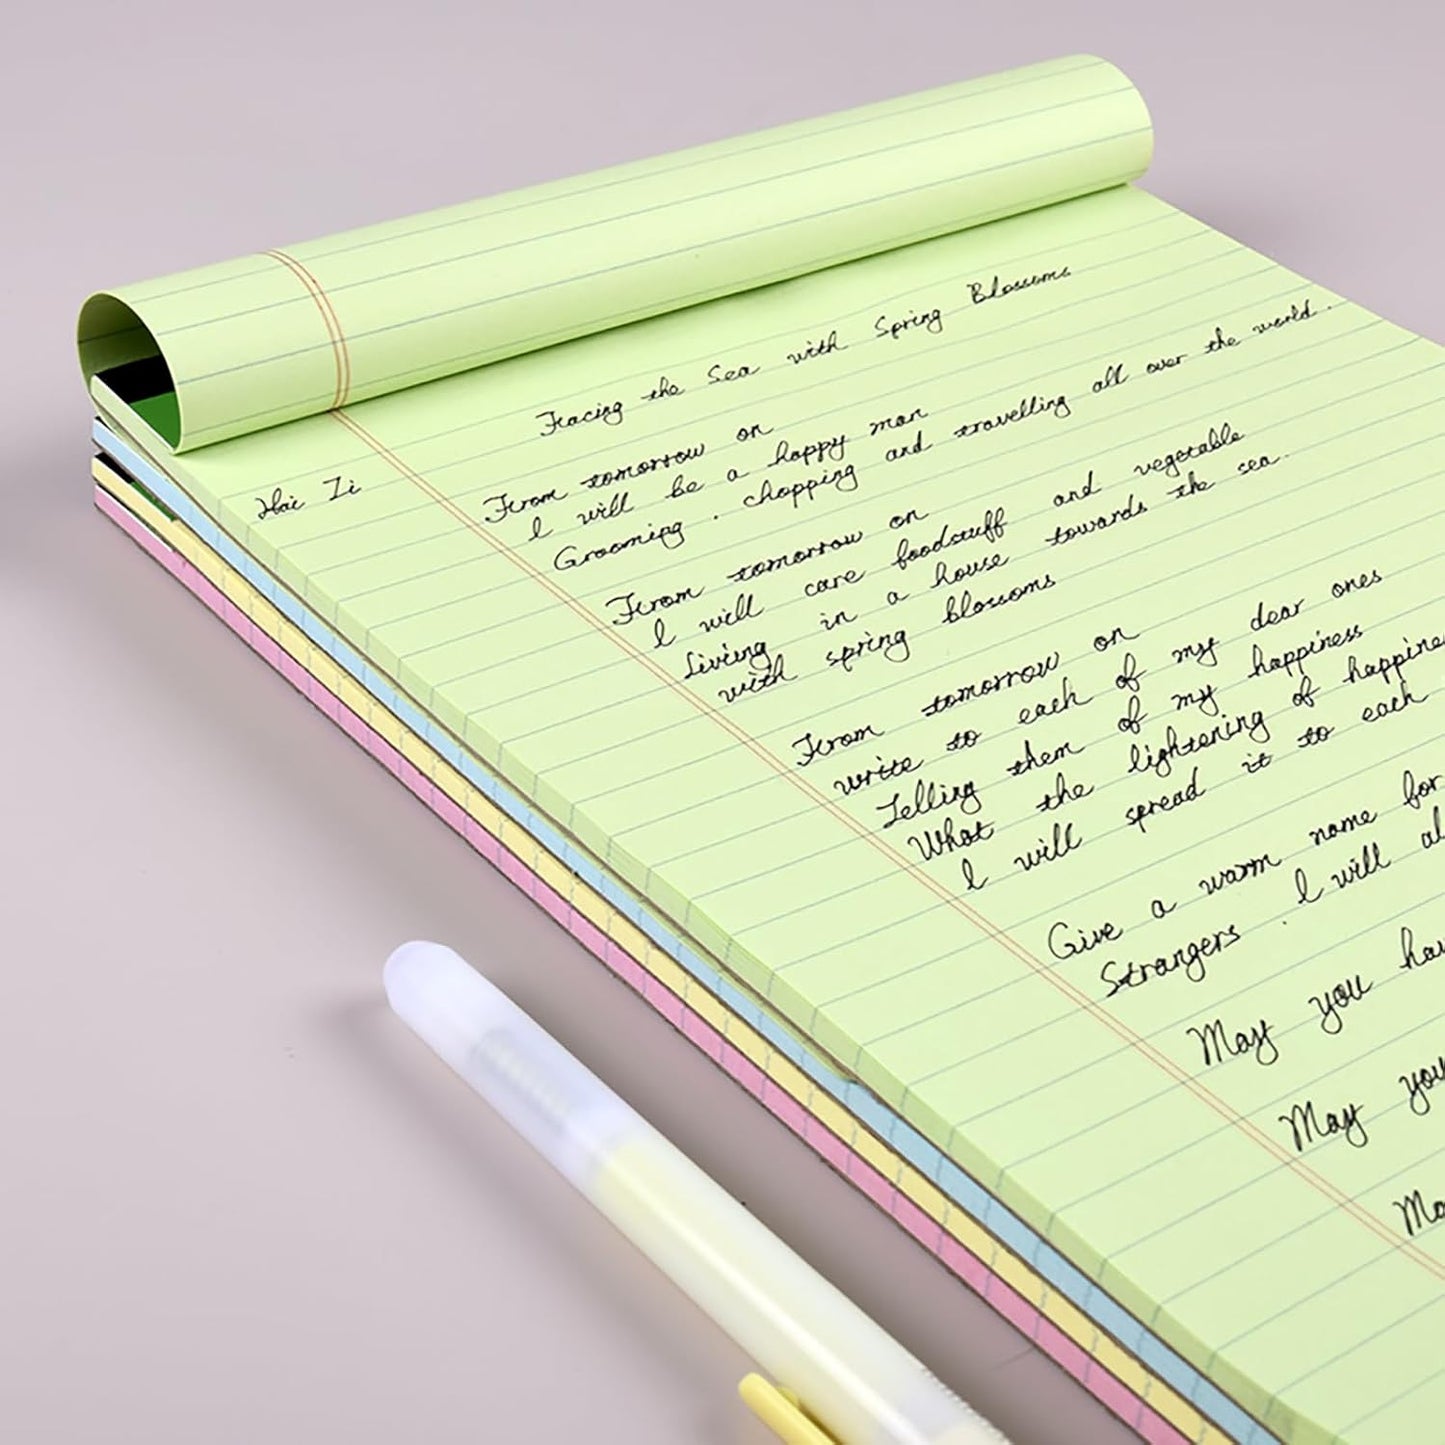 Facing the Sea with Spring Blossoms
Hai Zi
From tomorrow on
I will be a happy man
Grooming . chopping and travelling all over the world .
From tomorrow on
I will care foodstuff and vegetable
Living in a house towards the sea .
with spring blossoms
From tomorrow on
write to each of my dear ones
Telling them of my happiness
What the lightening of happine
I will spread it to each
Give a warm name for
Strangers . I will al
May you hav
May you
Ma